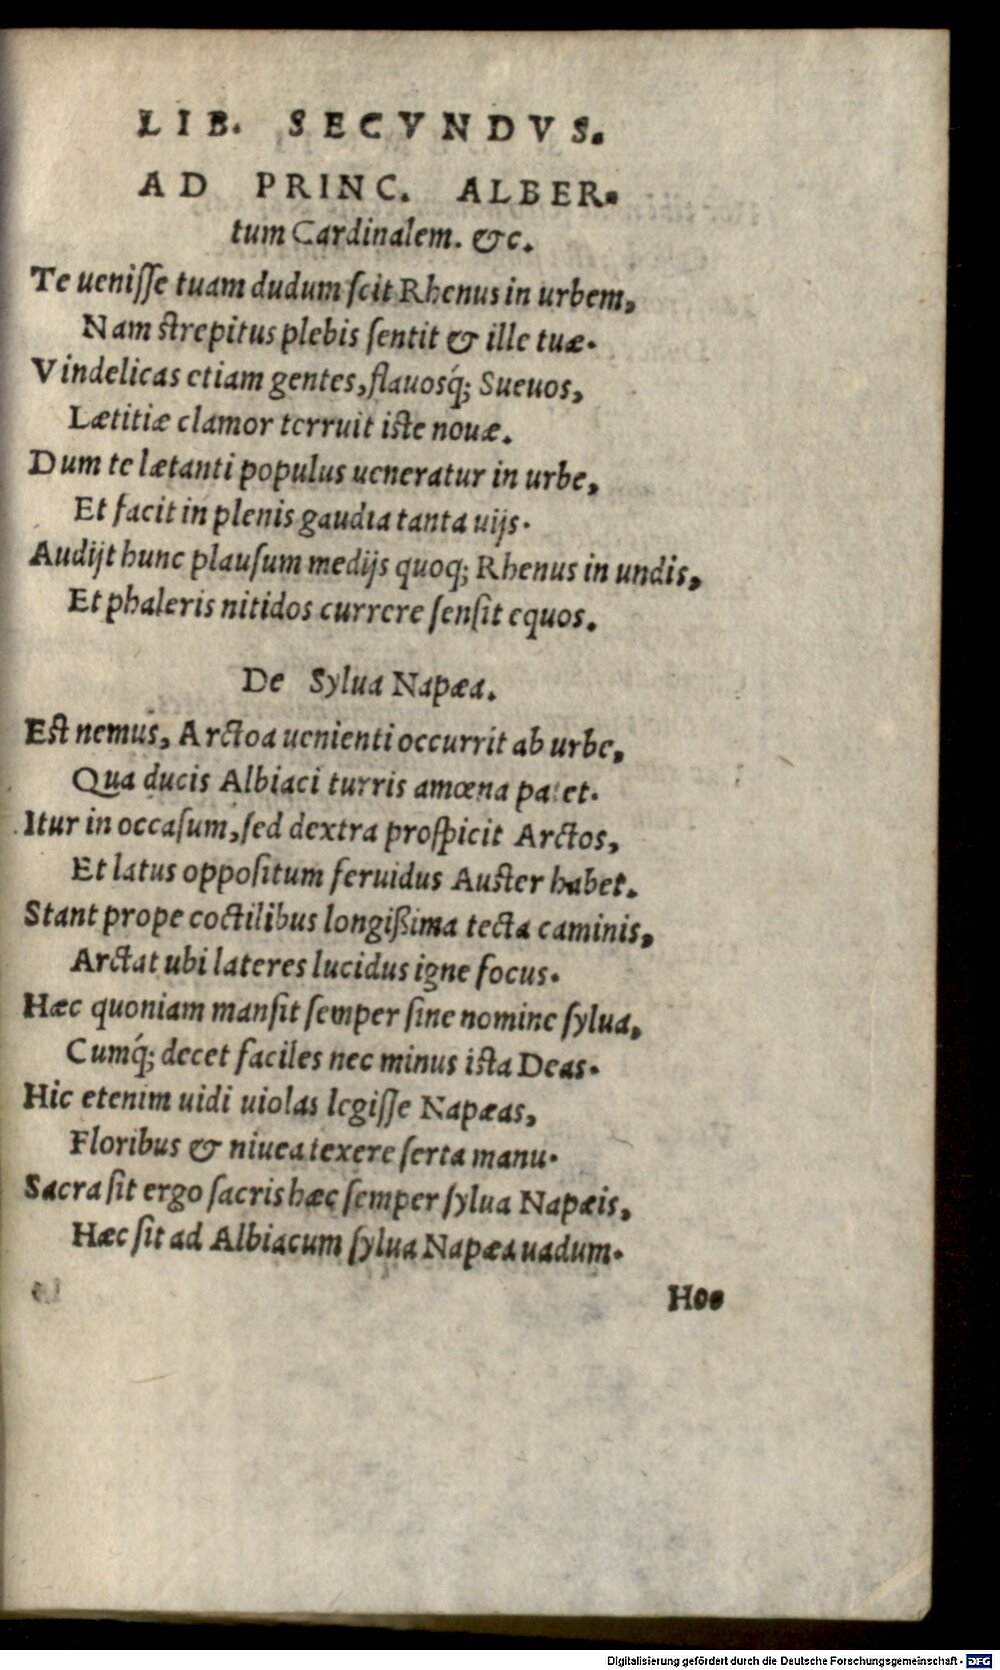 LIB. SECVNDVS.
AD PRINC. ALBER-
tum Cardinalem. &c.
Te uenisse tuam dudum scit Rhenus in urbem,
Nam strepitus plebis sentit & ille tuæ.
Vindelicas etiam gentes, flauosq́; Sueuos,
Lætitiæ clamor terruit iste nouæ.
Dum te lætanti populus ueneratur in urbe,
Et facit in plenis gaudia tanta uijs.
Audijt hunc plausum medijs quoq; Rhenus in undis,
Et phaleris nitidos currere sensit equos.
De Sylua Napæa.
Est nemus, Arctoa uenienti occurrit ab urbe,
Qua ducis Albiaci turris amœna patet.
Itur in occasum, sed dextra prospicit Arctos,
Et latus oppositum feruidus Auster habet.
Stant prope coctilibus longißima tecta caminis,
Arctat ubi lateres lucidus igne focus.
Hæc quoniam mansit semper sine nomine sylua,
Cumq́; decet faciles nec minus ista Deas.
Hic etenim uidi uiolas legisse Napæas,
Floribus & niuea texere serta manu.
Sacra sit ergo sacris hæc semper sylua Napæis,
Hæc sit ad Albiacum sylua Napæa uadum.
Hoc
Digitalisierung gefördert durch die Deutsche Forschungsgemeinschaft - DFG